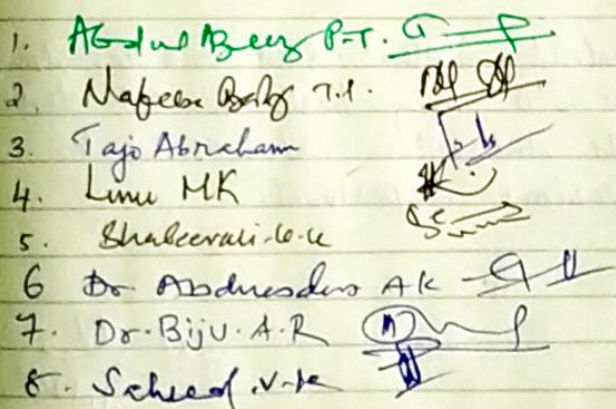 1. Abdul Azeez P.T.
2. Nafeesa Baby T.I.
3. Tajo Abraham
4. Linu MK
5. Shakeerali.k.k
6 Dr AK
7. Dr. Biju. A.R
8. Saheed .V.K